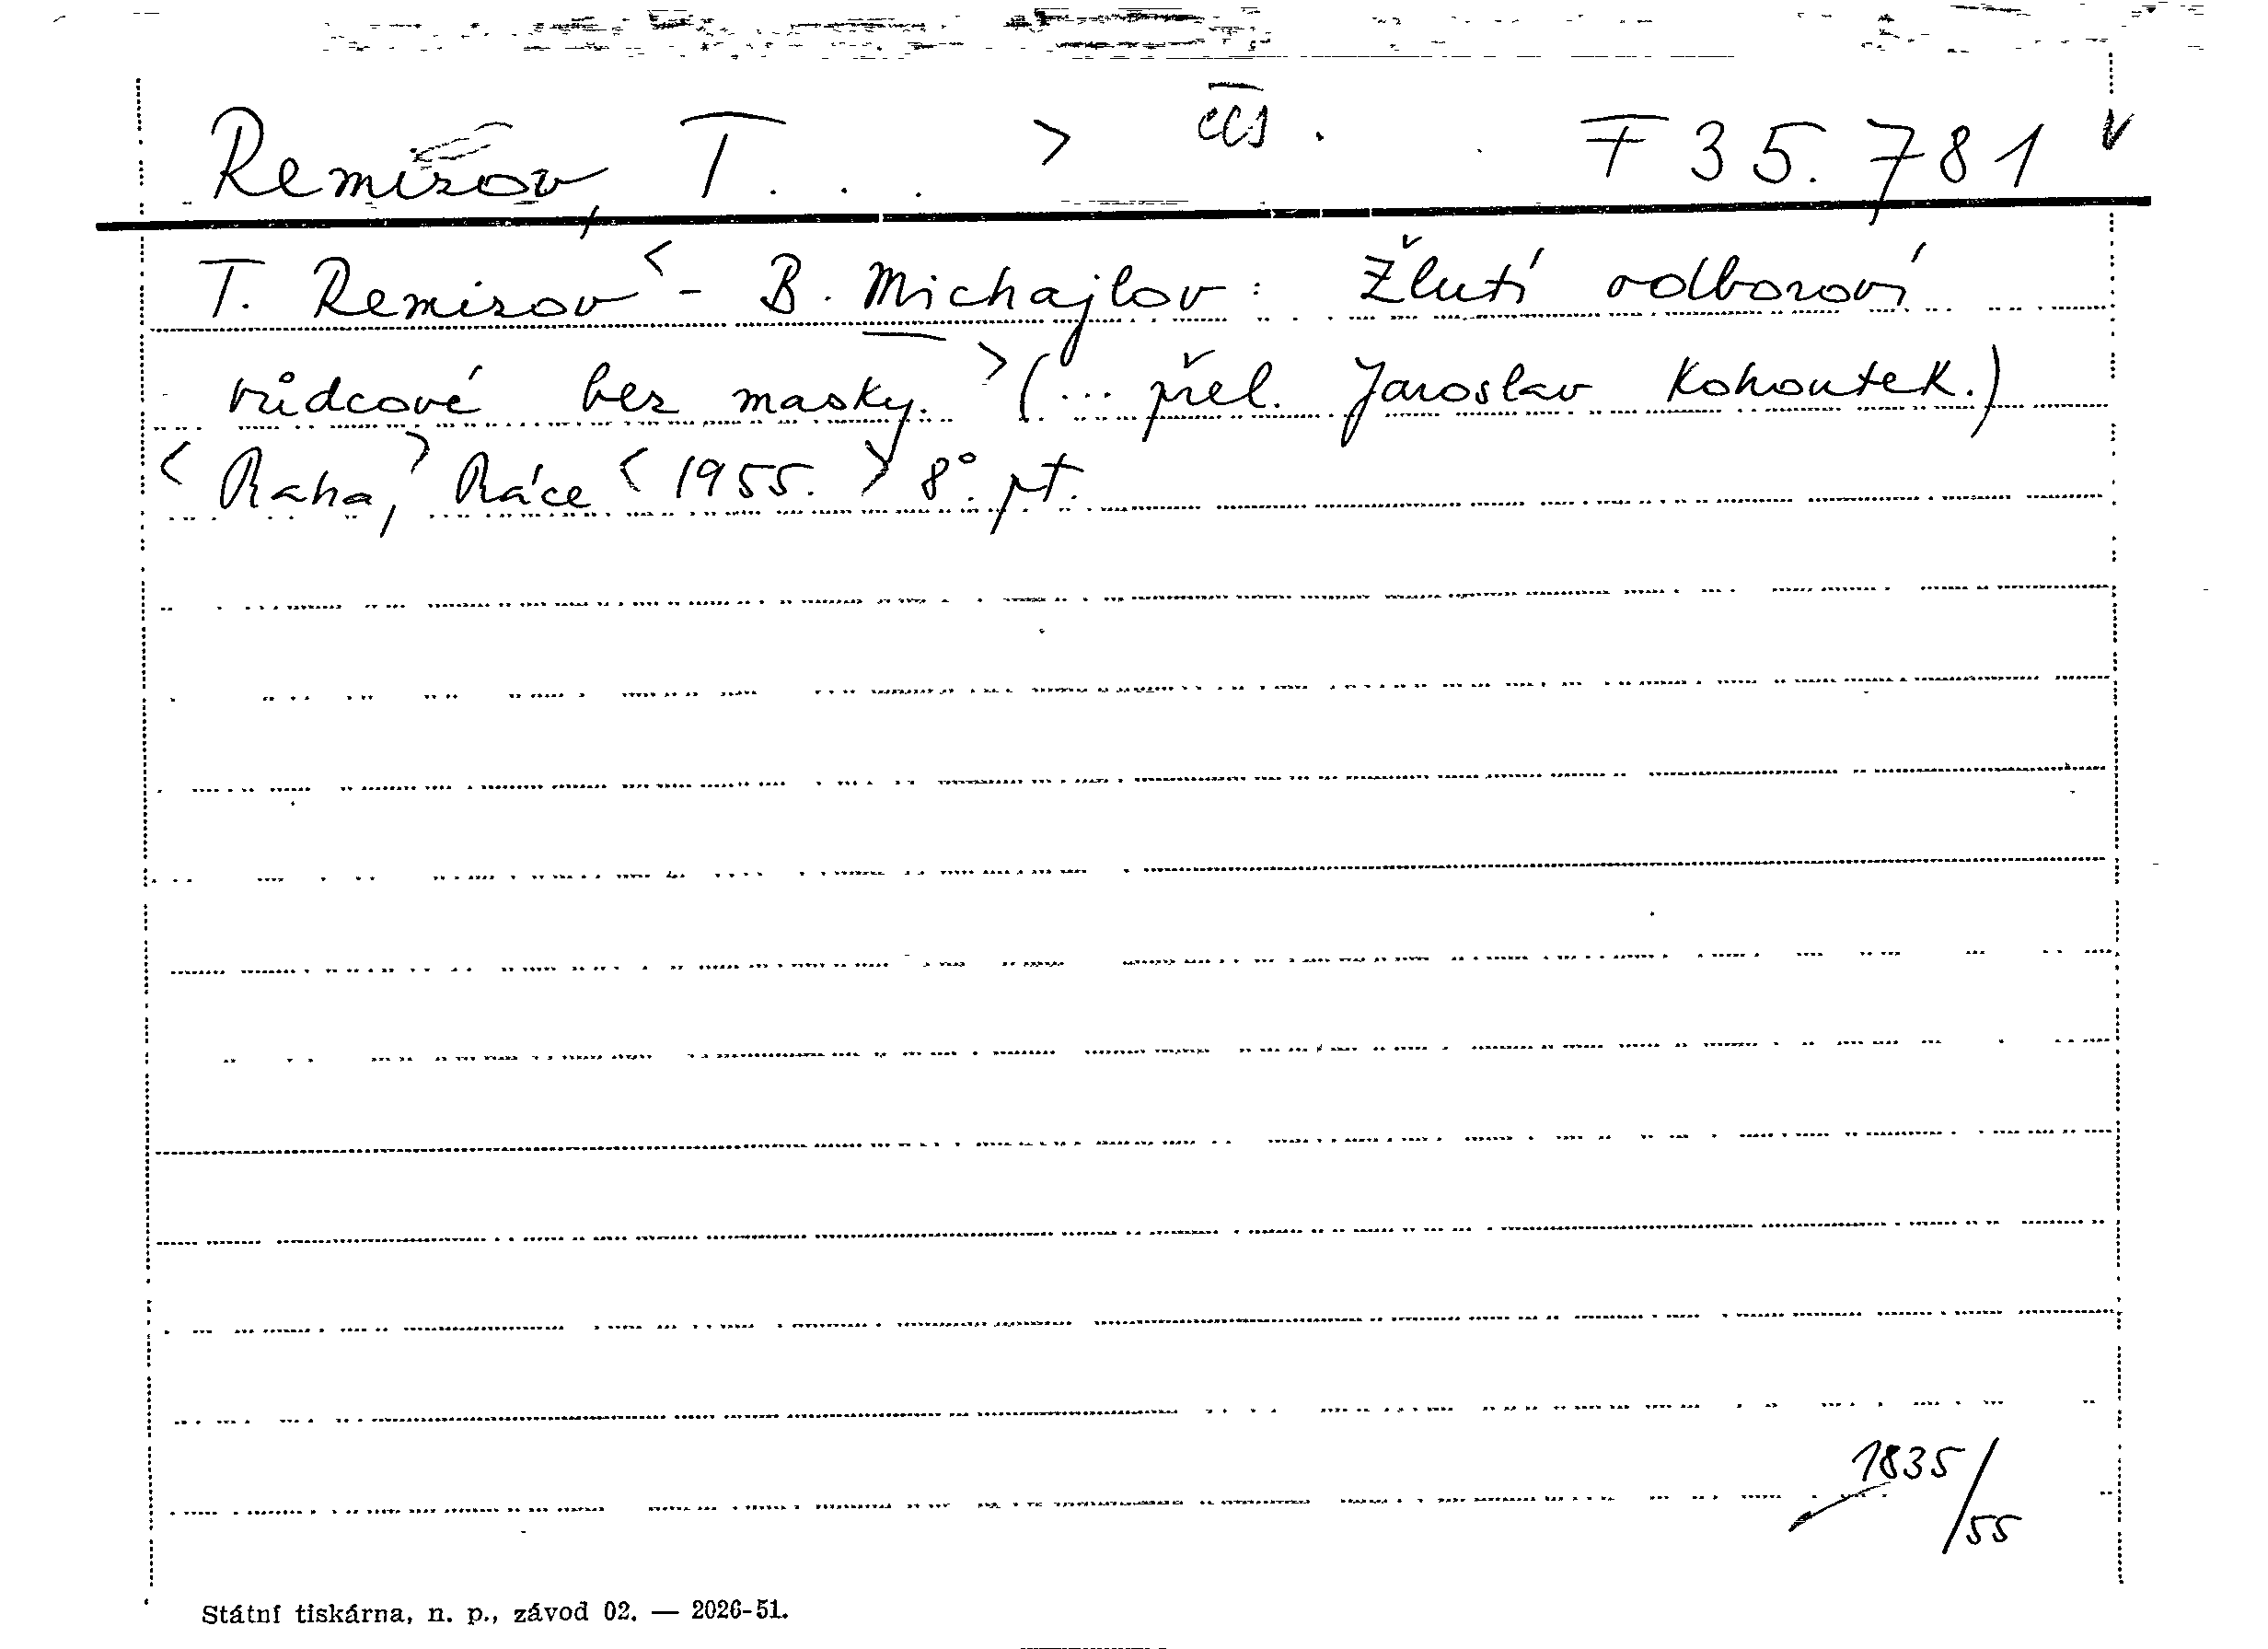 Remizov, T. . . > F 35.781
T. Remizov < - B. Michajlov: Žlutí odboroví
vůdcové bez masky. > (... přel. Jaroslav Kohoutek.)
< Praha, > Práce < 1955. > 8°. pt.
1835/55
Státní tiskárna, n. p., závod 02. — 2026-51.